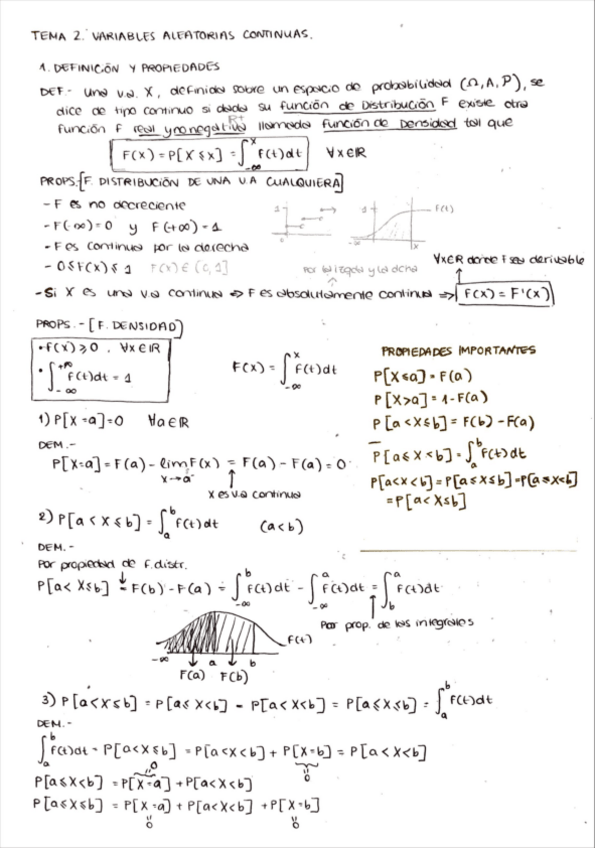 TEMA 2. VARIABLES ALEATORIAS CONTINUAS.
1. DEFINICIÓN Y PROPIEDADES
DEF.- Una v.a. X, definida sobre un espacio de probabilidad (Ω, A, P), se
dice de tipo continuo si dada su función de Distribución F existe otra
función F real y no negativa llamada función de Densidad tal que
R+
F(x) = P[X ≤ x] = ∫_{-∞}^{x} f(t)dt ∀x∈ℝ
PROPS.-[F. DISTRIBUCIÓN DE UNA V.A CUALQUIERA]
- F es no decreciente
- F(-∞)=0 y F(+∞)=1
- F es continua por la derecha
- 0≤F(x)≤1 F(x)∈(0,1]
1 1 F(t)
-∞ x
por la izqda y la dcha
∀x∈ℝ donde F sea derivable
- Si X es una v.a continua ⇒ F es absolutamente continua ⇒ f(x) = F'(x)
PROPS.-[F. DENSIDAD]
• f(x) ≥ 0, ∀x∈ℝ
• ∫_{-∞}^{+∞} f(t)dt = 1
F(x) = ∫_{-∞}^{x} f(t)dt
PROPIEDADES IMPORTANTES
P[X≤a] = F(a)
P[X>a] = 1-F(a)
P[a<X≤b] = F(b) - F(a)
P[a≤X<b] = ∫_{a}^{b} f(t)dt
P[a<X<b] = P[a≤X≤b] = P[a≤X<b]
= P[a<X≤b]
1) P[X=a]=0 ∀a∈ℝ
DEM.-
P[X=a] = F(a) - lim F(x) = F(a) - F(a) = 0
x→a⁻
X es v.a continua
2) P[a<X≤b] = ∫_{a}^{b} f(t)dt (a<b)
DEM.-
Por propiedad de f.distr.
P[a<X≤b] = F(b) - F(a) = ∫_{-∞}^{b} f(t)dt - ∫_{-∞}^{a} f(t)dt = ∫_{b}^{a} f(t)dt
Por prop. de las integrales
-∞ a b F(t)
F(a) F(b)
3) P[a<X≤b] = P[a≤X<b] = P[a<X<b] = P[a≤X≤b] = ∫_{a}^{b} f(t)dt
DEM.-
∫_{a}^{b} f(t)dt = P[a<X≤b] = P[a<X<b] + P[X=b] = P[a<X<b]
0 0
P[a≤X<b] = P[X=a] + P[a<X<b]
P[a≤X≤b] = P[X=a] + P[a<X<b] + P[X=b]
0 0